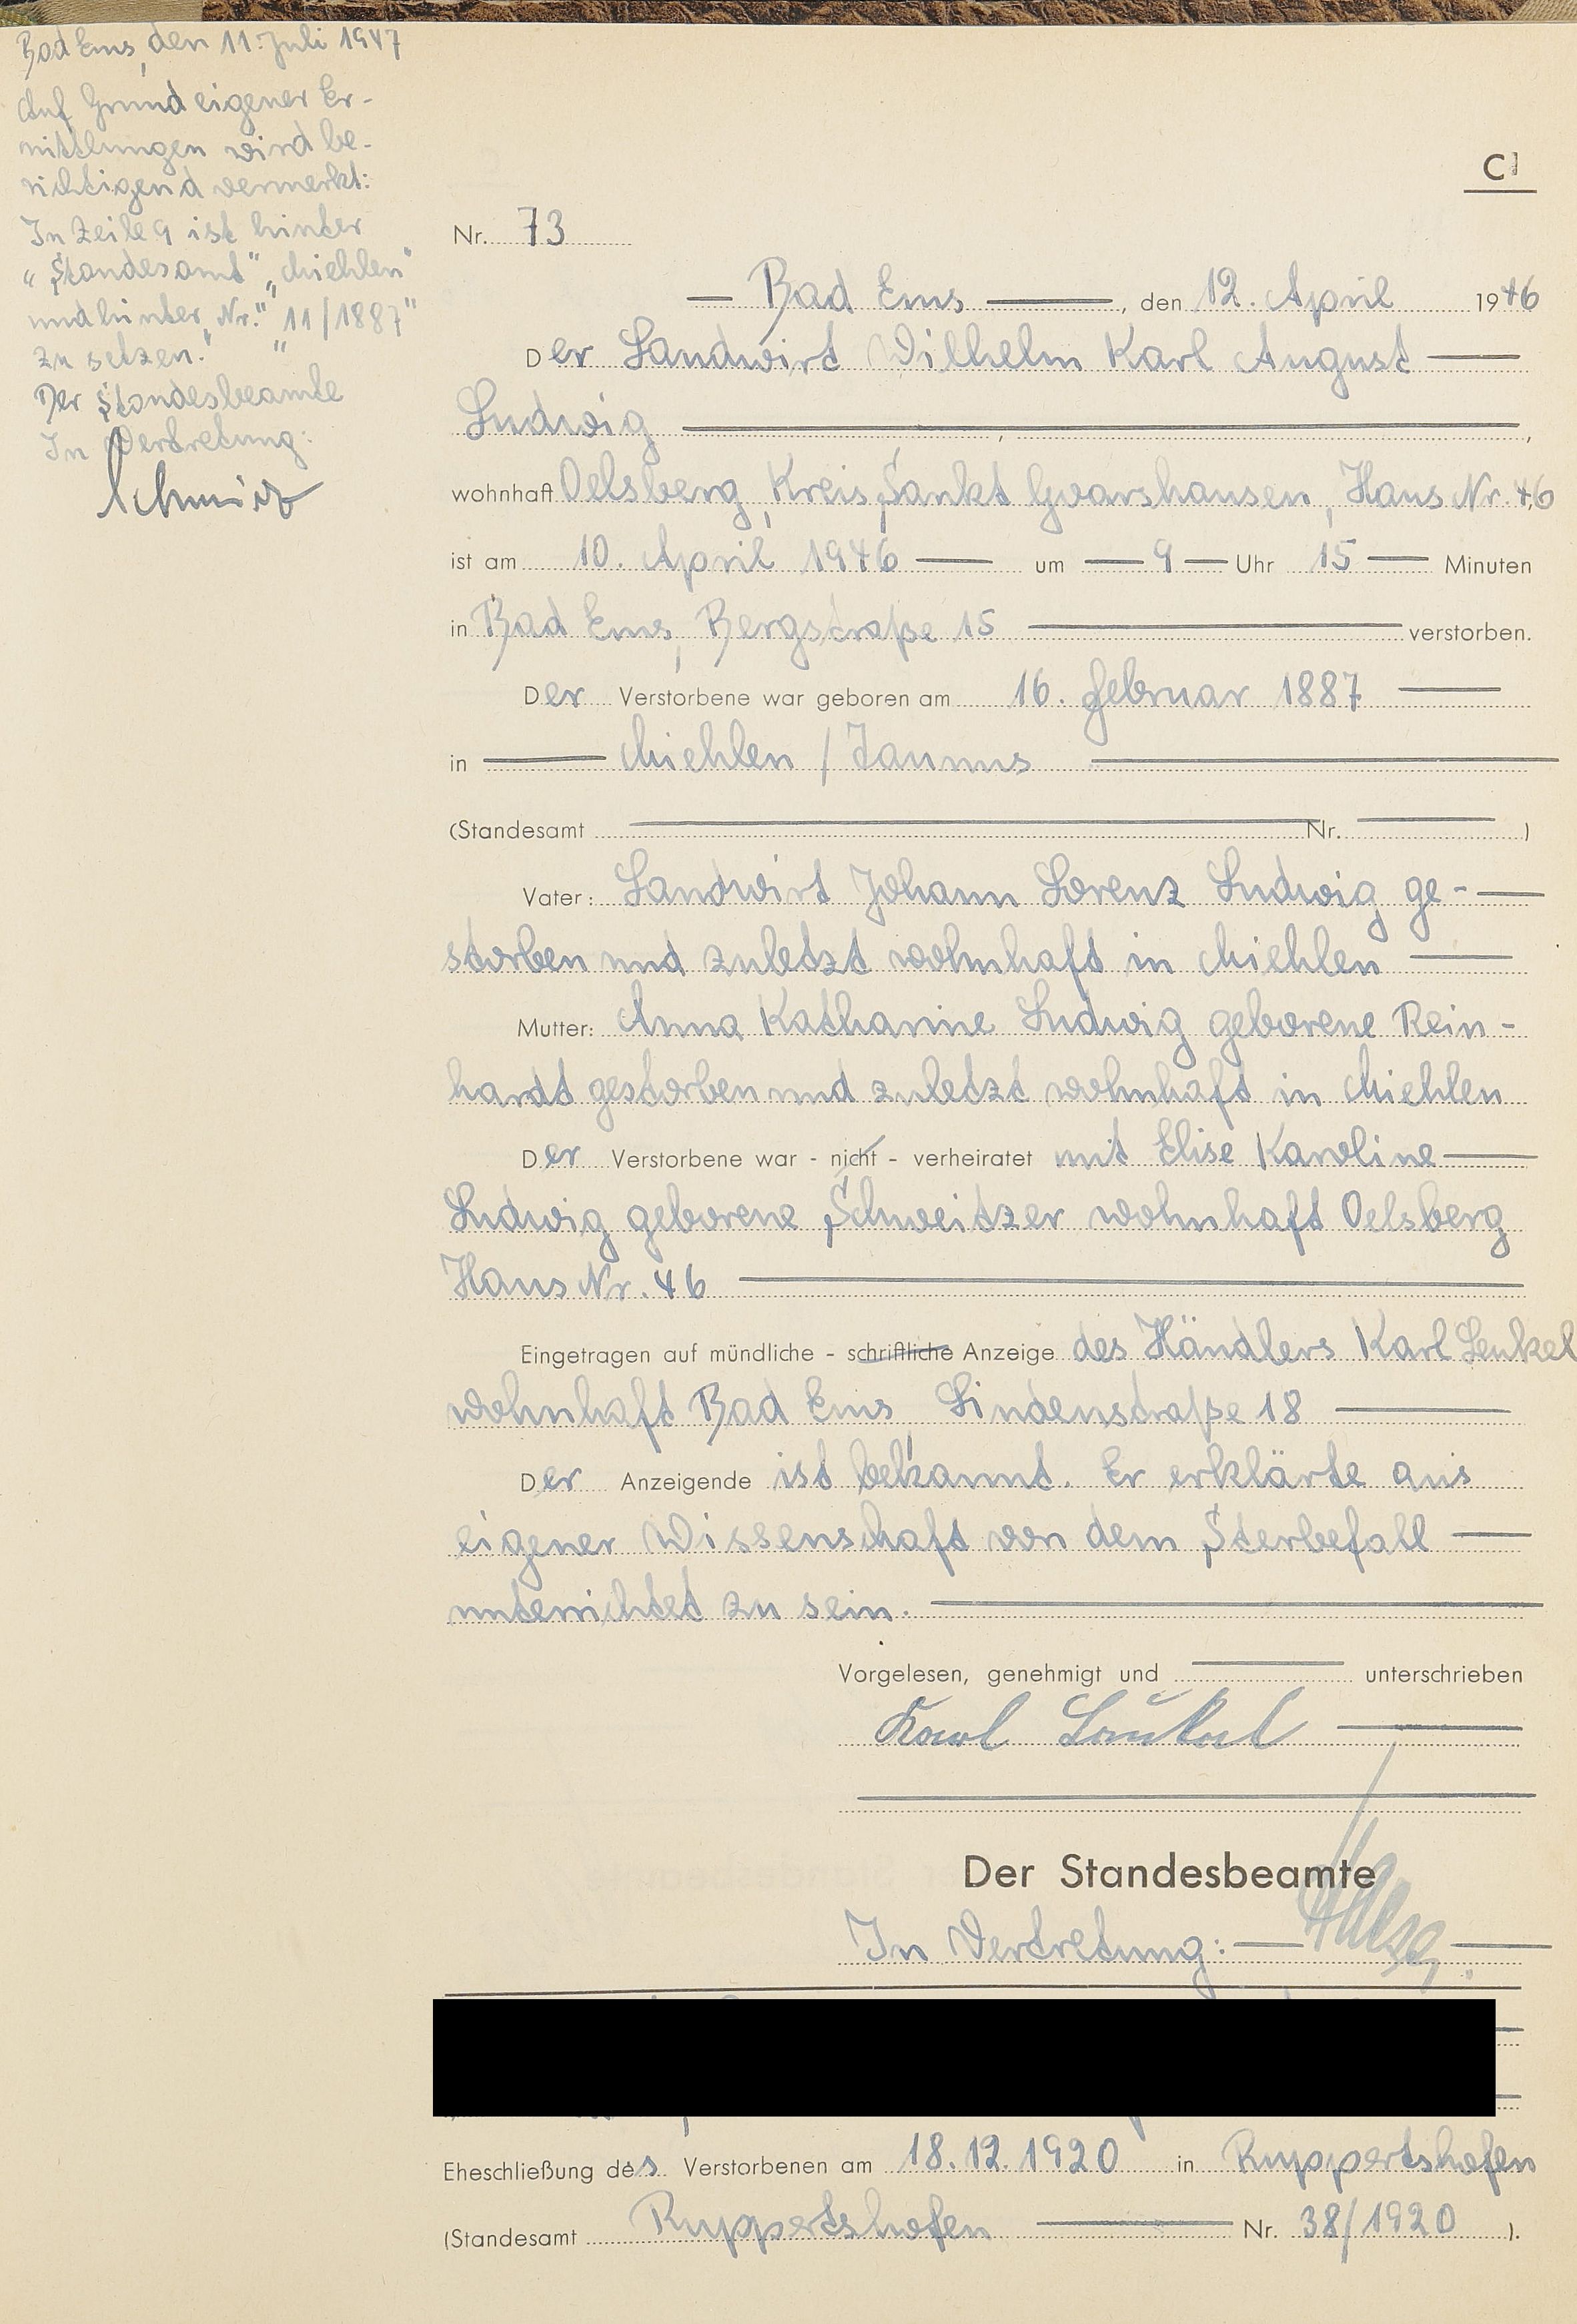 Bad Ems, den 11. Juli 1947
Auf Grund eigener Er-
mittlungen wird be-
richtigend vermerkt:
In Zeile 9 ist hinter
"Standesamt" "Miehlen"
und hinter "Nr." "11/1887"
zu setzen."
Der Standesbeamte
In Vertretung:
Schmitz
C1
Nr. 73
— Bad Ems —, den 12. April 1946
Der Landwirt Wilhelm Karl August —
Ludwig —, —,
wohnhaft Oelsberg, Kreis Sankt Goarshausen, Haus Nr. 46,
ist am 10. April 1946 — um — 9 — Uhr 15 — Minuten
in Bad Ems, Bergstraße 15 — verstorben.
Der Verstorbene war geboren am 16. Februar 1887 —
in — Miehlen / Taunus —
(Standesamt — Nr. — )
Vater: Landwirt Johann Lorenz Ludwig ge- —
storben und zuletzt wohnhaft in Miehlen —
Mutter: Anna Katharine Ludwig geborene Rein-
hardt gestorben und zuletzt wohnhaft in Miehlen
Der Verstorbene war - nicht - verheiratet mit Elise Karoline —
Ludwig geborene Schweitzer wohnhaft Oelsberg
Haus Nr. 46 —
Eingetragen auf mündliche - schriftliche Anzeige des Händlers Karl Lenkel
wohnhaft Bad Ems, Lindenstraße 18 —
Der Anzeigende ist bekannt. Er erklärte aus
eigener Wissenschaft von dem Sterbefall —
unterrichtet zu sein. —
Vorgelesen, genehmigt und — unterschrieben
Karl Lenkel —
Der Standesbeamte
In Vertretung: —
Eheschließung des Verstorbenen am 18.12.1920 in Ruppertshofen
(Standesamt Ruppertshofen — Nr. 38/1920 ).